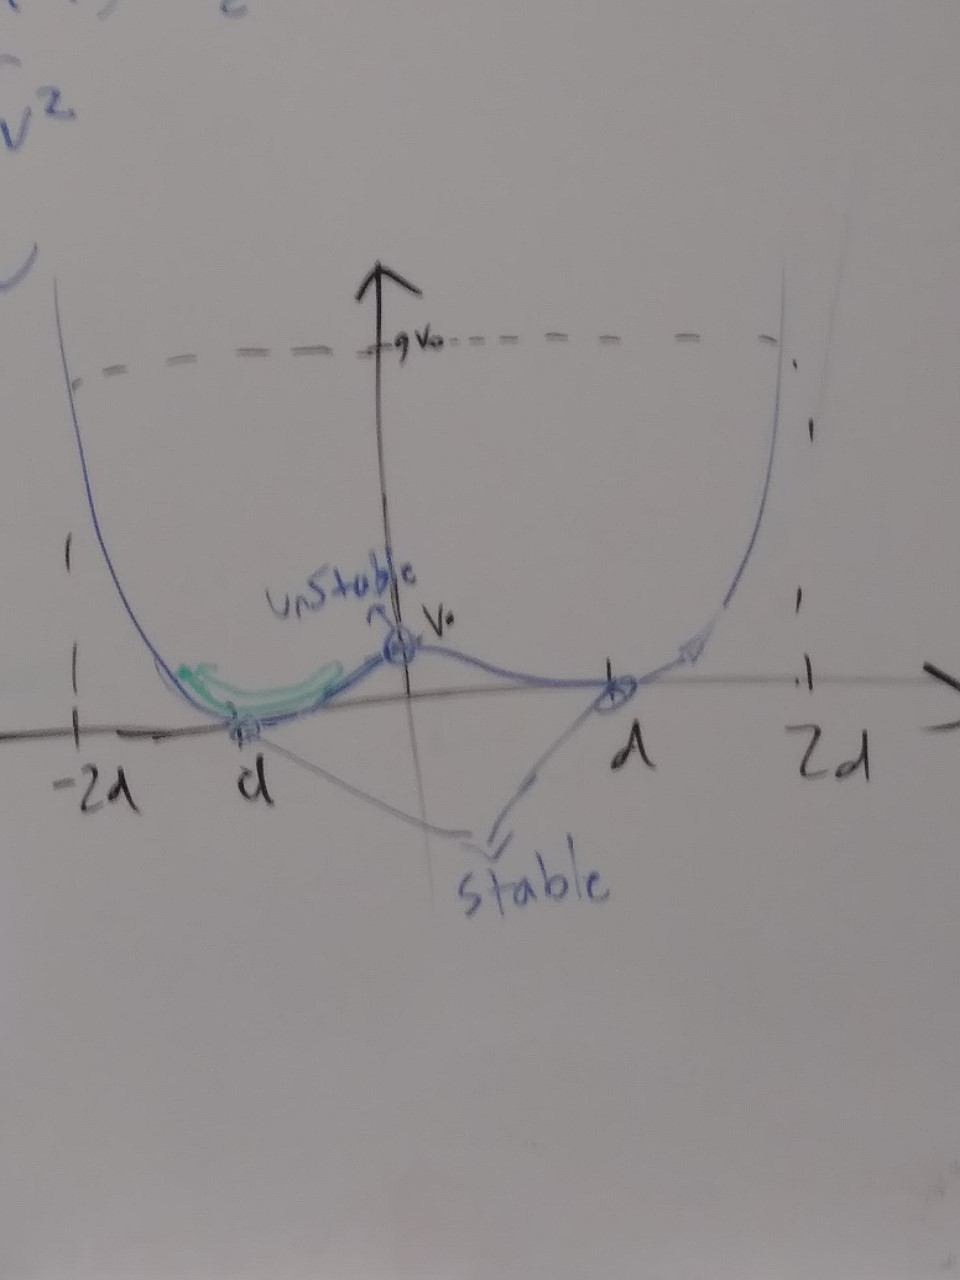 v²
9V₀
unstable
V₀
-2d
d
d
2d
stable